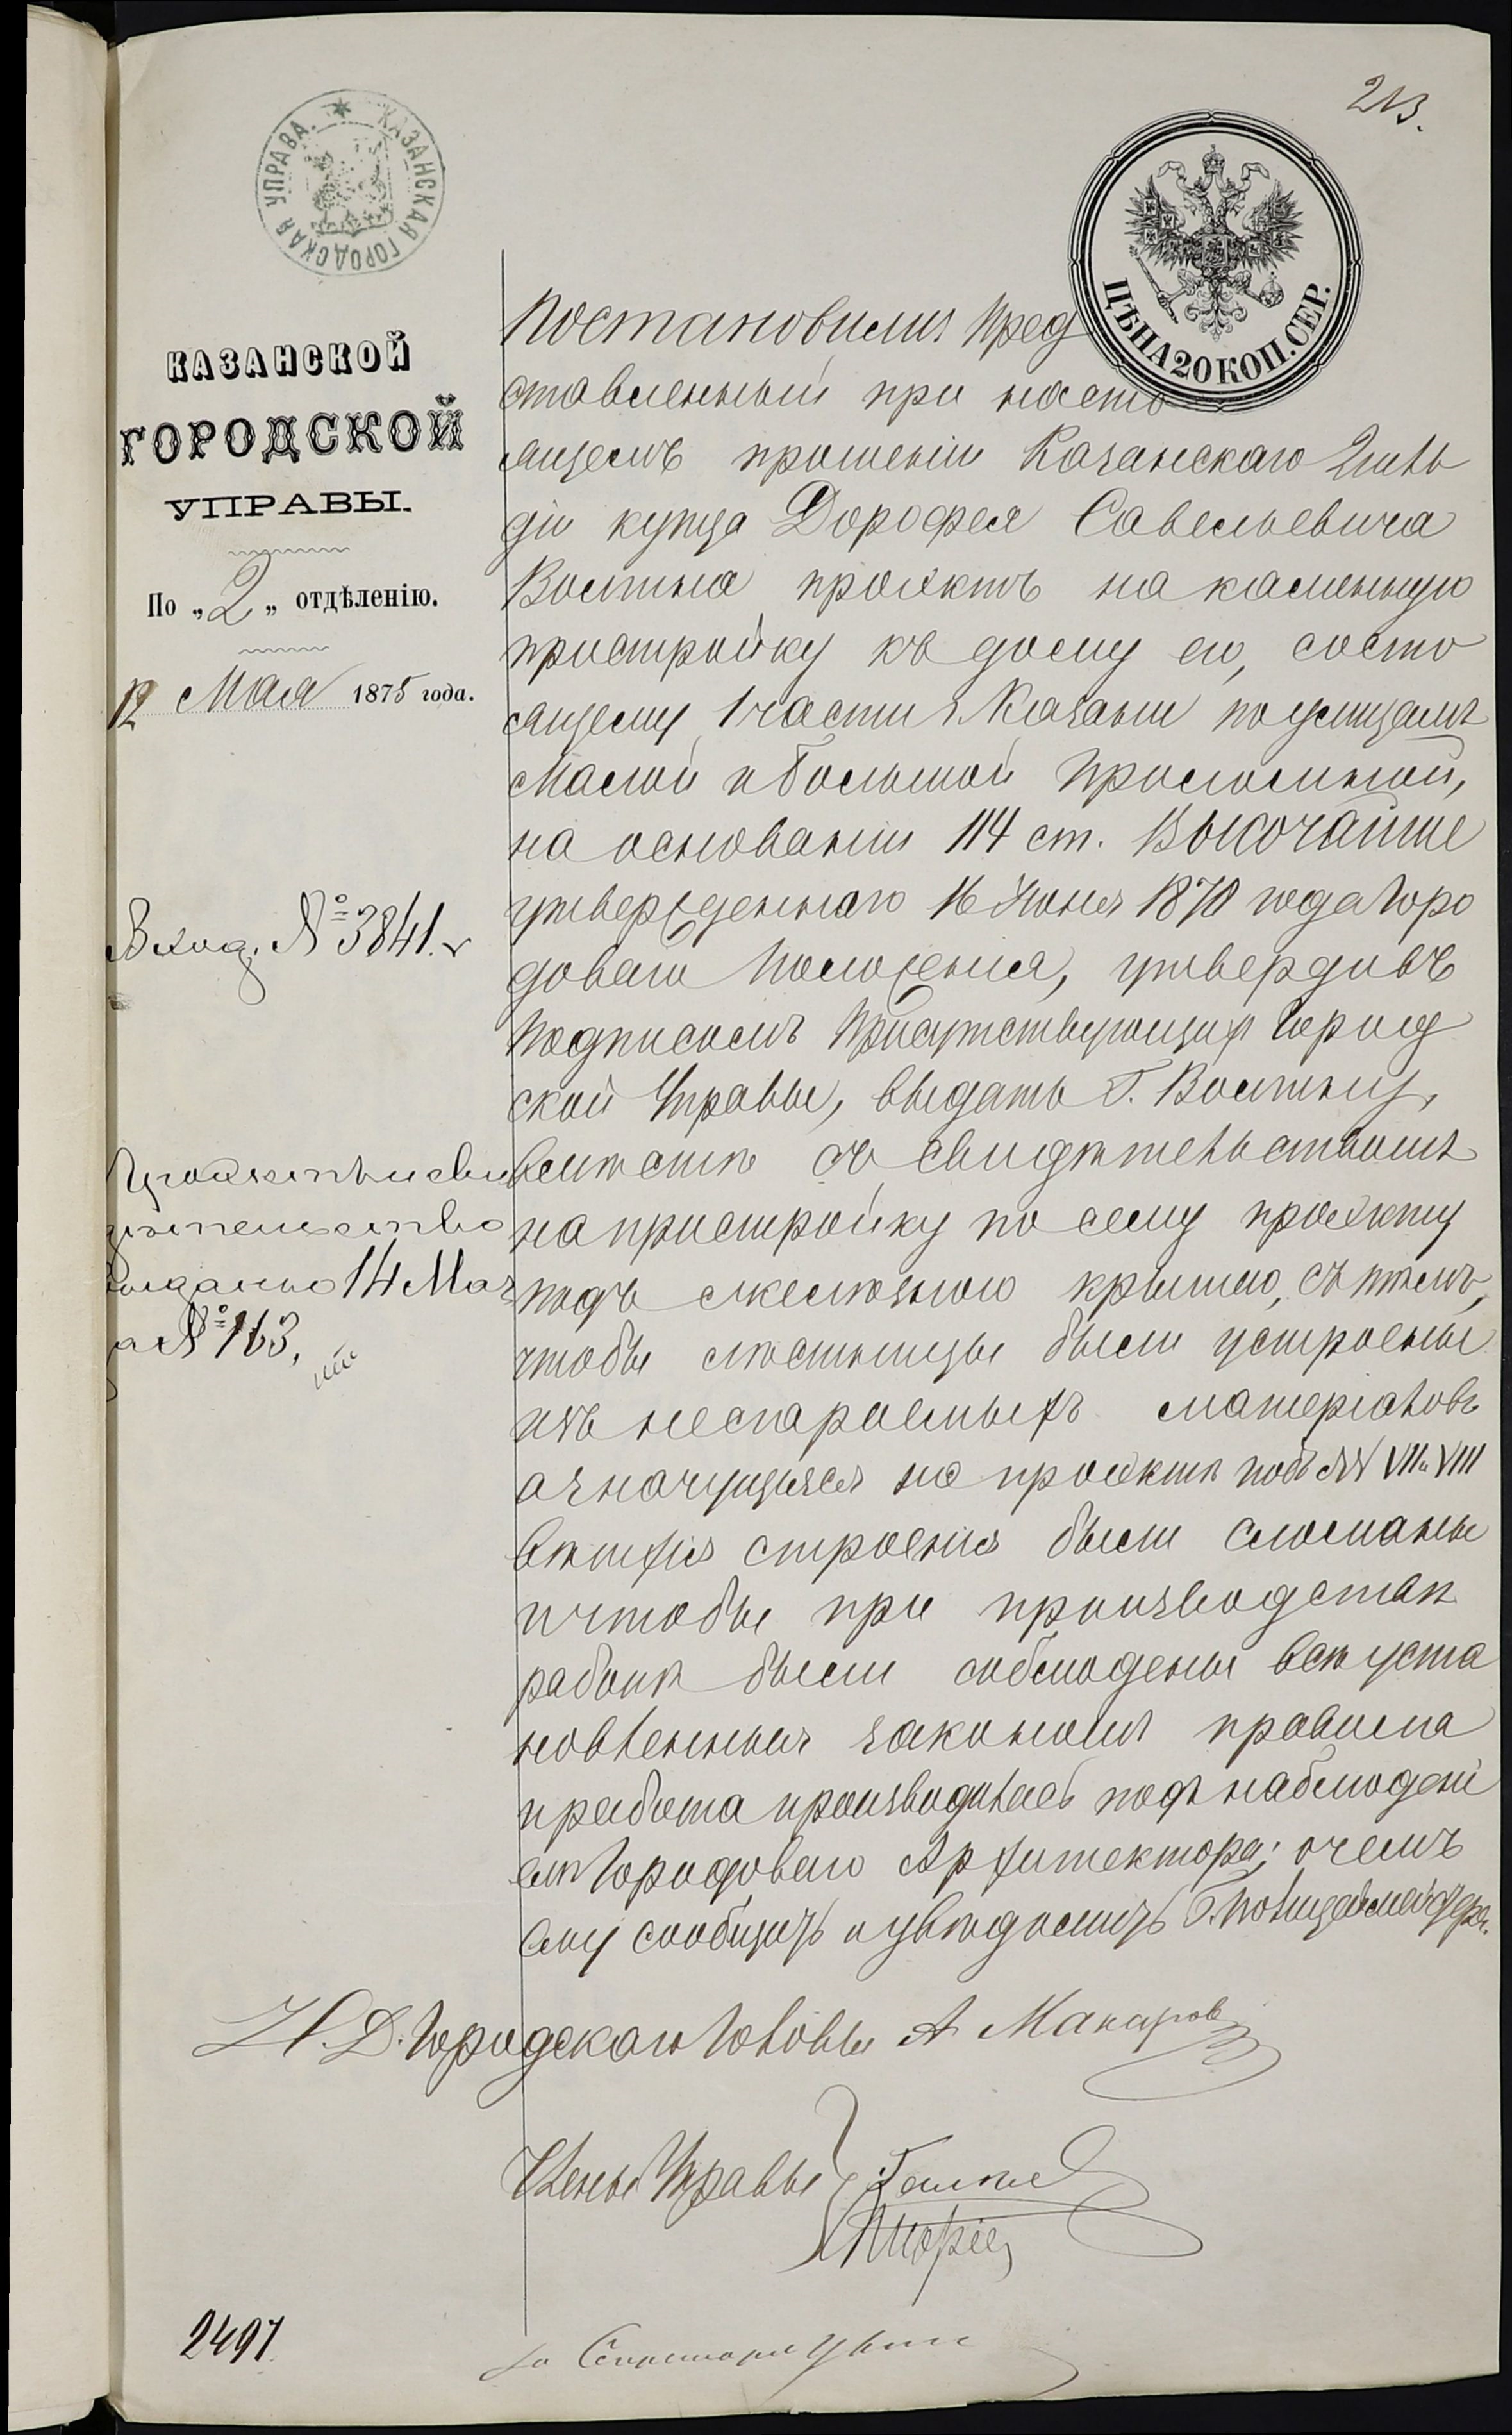 213.
КАЗАНСКАЯ ГОРОДСКАЯ УПРАВА.
ЦѢНА 20 КОП. СЕР.
КАЗАНСКОЙ
ГОРОДСКОЙ
УПРАВЫ.
По „2„ отдѣленію.
12 Мая 1875 года.
Вход. № 3841.
Проэктъ и сви
дѣтельство
выдано 14 Мая
за № 163,
Постановили: Пред
ставленный при насто
ящемъ прошеніи Казанскаго 2 гиль
діи купца Дорофея Савельевича
проэктъ на каменную
пристройку къ дому его, состо
ящему 1 части г. Казани по улицамъ
Малой и Большой Проломной,
на основаніи 114 ст. Высочайше
утвержденнаго 16 Іюня 1870 года Горо
доваго Положенія, утвердивъ
подписомъ Присутствующихъ Город
ской Управы, выдать Г.
вмѣстѣ съ свидѣтельствомъ
на пристройку по сему проэкту
подъ желѣзною крышею, съ тѣмъ,
чтобы лѣстницы были устроены
изъ несгараемыхъ матеріаловъ
а значущіяся на проэктѣ подъ №№ VII и VIII
ветхія строенія были сломаны
и чтобы при производствѣ
работъ были соблюдены всѣ уста
новленныя закономъ правила
и работа производилась подъ наблюдені
емъ Городоваго Архитектора; о чемъ
ему сообщить и увѣдомить Г. Полицеймейстера.
И. Д. Городскаго Головы А Макаровъ
Члены Управы
за Секретаря
2497